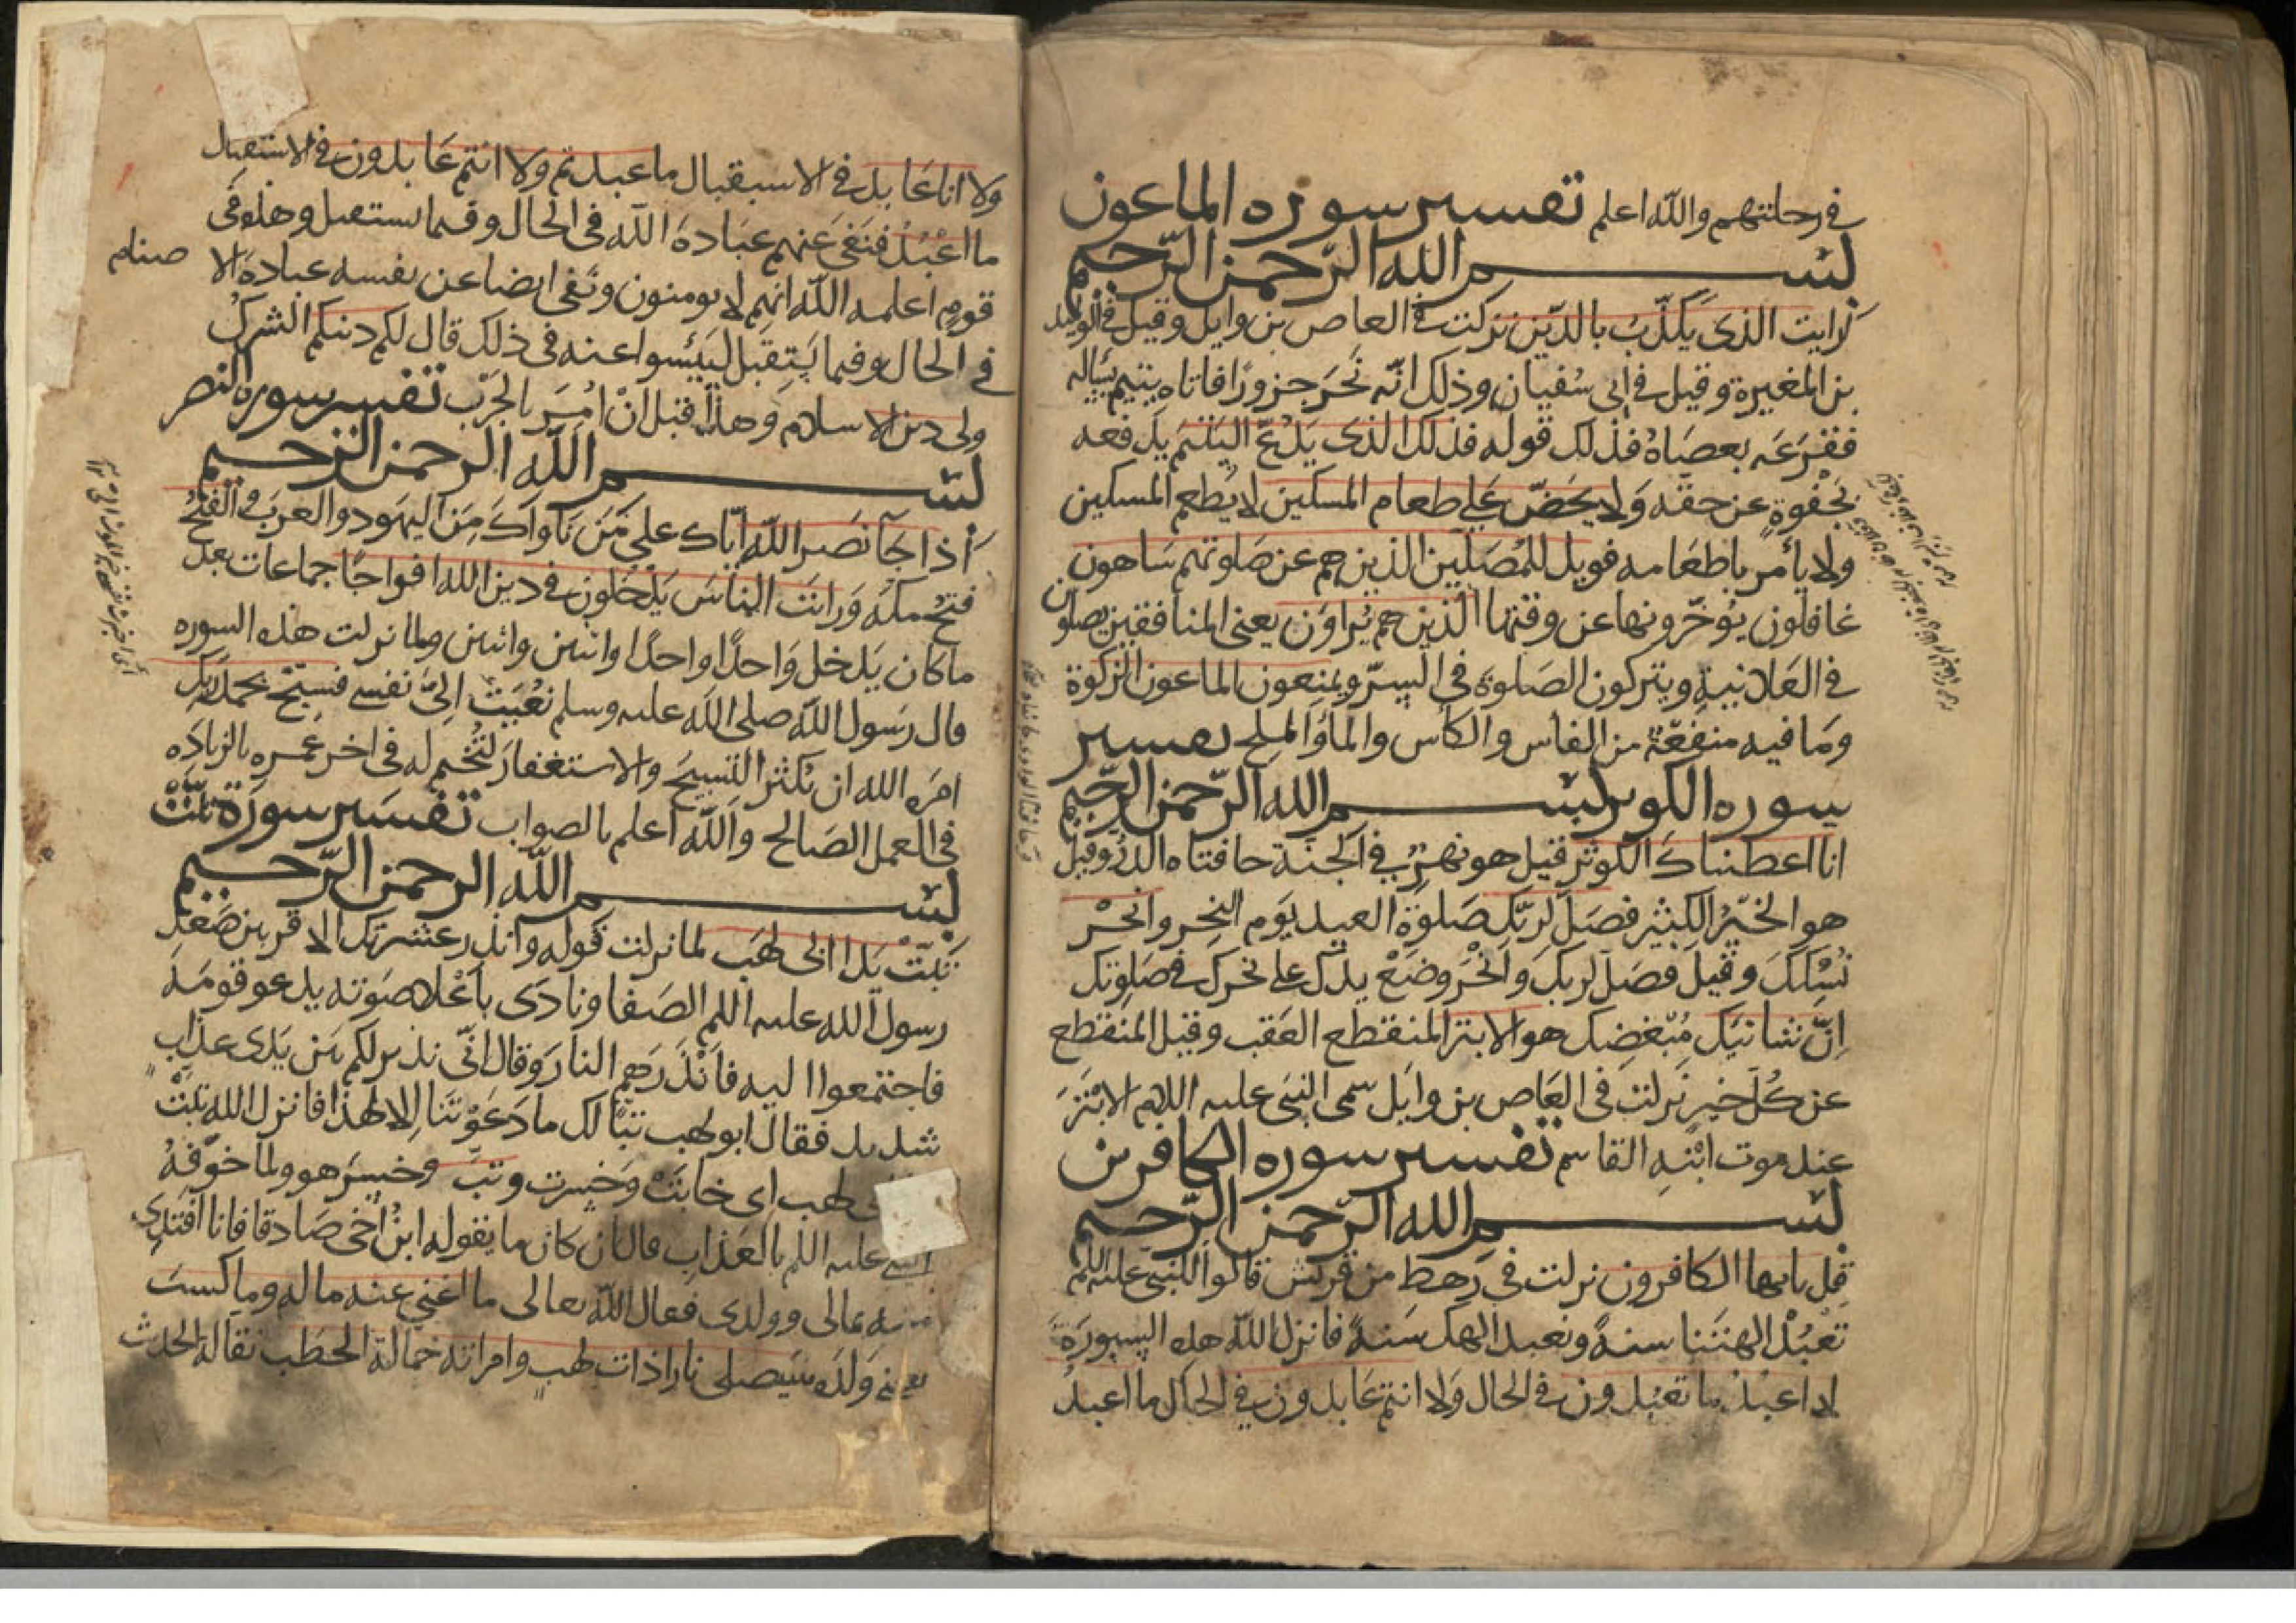 في رحلتهم والله اعلم تفسير سوره الماعون
بسم الله الرحمن الرحيم
ارايت الذي يكذب بالدين نزلت في العاص بن وايل وقيل في الوليد
بن المغيرة وقيل في ابي سفيان وذلك انه نحر جزورا فاتاه يتيم يساله
فقرعه بعصاه فذلك قوله فذلك الذي يدع اليتيم يدفعه
بجفوة عن حقه ولا يحض على طعام المسكين لا يطعم المسكين
ولا يأمر باطعامه فويل للمصلين الذين هم عن صلوتهم ساهون
غافلون يؤخرونها عن وقتها الذين هم يراون يعني المنافقين يصلون
في العلانية ويتركون الصلوة في السر ويمنعون الماعون الزكوة
وما فيه منفعة من الفاس والكاس والماؤ الملح تفسير
سوره الكوثر بسم الله الرحمن الرحيم
انا اعطيناك الكوثر قيل هو نهر في الجنة حافتاه الدر وقيل
هو الخير الكثير فصل لربك صلوة العيد يوم النحر وانحر
نسكك وقيل فصل لربك وانحر وضع يدك على نحرك في صلوتك
ان شانيك مبغضك هو الابتر المنقطع العقب وقيل المنقطع
عن كل خير نزلت في العاص بن وايل سمى النبي عليه اللام الابتر
عند موت ابنه القاسم تفسير سوره الكافرين
بسم الله الرحمن الرحيم
قل يايها الكافرون نزلت في رهط من قريش قالوا للنبي عليه اللم
تعبد الهتنا سنة ونعبد الهك سنة فانزل الله هذه السورة
لا اعبد ما تعبدون في الحال ولا انتم عابدون في الحال ما اعبد
ولا انا عابد في الاستقبال ما عبدتم ولا انتم عابدون في الاستقبال
ما اعبد فنفى عنهم عبادة الله في الحال وفيما يستقبل وهذا في
قوم اعلمه الله انهم لا يومنون ونفى ايضا عن نفسه عبادة الا صنام
في الحال وفيما يستقبل لييئسوا عنه في ذلك قال لكم دينكم الشرك
ولي دين الاسلام وهذا قبل ان امر بالحرب تفسير سوره النصر
بسم الله الرحمن الرحيم
اذا جا نصر الله اياك على من ناواك من اليهود والعرب والفتح
فتح مكة ورايت الناس يدخلون في دين الله افواجا جماعات بعد
ما كان يدخل واحدا واحدا واثنين واثنين ولما نزلت هذه السوره
قال رسول الله صلى الله عليه وسلم نعيت الي نفسي فسبح بحمد ربك
امره الله ان يكثر التسبيح والاستغفار لتختم له في اخر عمره بالزياده
في العمل الصالح والله اعلم بالصواب تفسير سورة تبت
بسم الله الرحمن الرحيم
تبت يدا ابي لهب لما نزلت قوله وانذر عشيرتك الاقربين صعد
رسول الله عليه اللم الصفا ونادى باعلا صوته يدعو قومه
فاجتمعوا اليه فانذرهم النار وقال اني نذير لكم بين يدي عذاب
شديد فقال ابو لهب تبا لك ما دعوتنا الا لهذا فانزل الله تبت
لهب اي خابت وخسرت وتب وخسر هو ولما خوفه
النبي عليه اللم بالعذاب قال ان كان ما يقوله ابن اخي صادقا فانا افتدي
منه بمالي وولدي فقال الله تعالى ما اغني عنه ماله وما كسب
يعني ولده سيصلى نارا ذات لهب وامراته حمالة الحطب نقالة الحديث